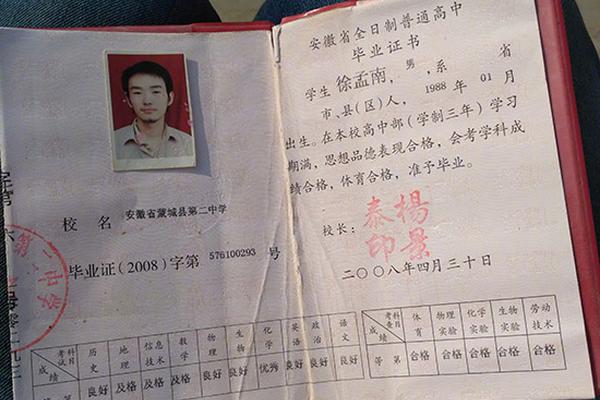 校 名 安徽省蒙城县第二中学
毕业证(2008)字第 576100293 号
考试科目 历史 地理 信息技术 数学 物理 生物 化学 英语 政治 语文
成绩 良好 及格 及格 及格 良好 良好 优秀 良好 良好 良好
安徽省全日制普通高中
毕业证书
学生 徐孟南,男,系 省
市、县(区)人,1988 年 01 月
出生。在本校高中部(学制三年)学习
期满,思想品德表现合格,会考学科成
绩合格,体育合格,准予毕业。
校长: 楊景泰印
二〇〇八年四月三十日
考查科目 体育 物理实验 化学实验 生物实验 劳动技术
成绩
等 第 合格 合格 合格 合格 合格